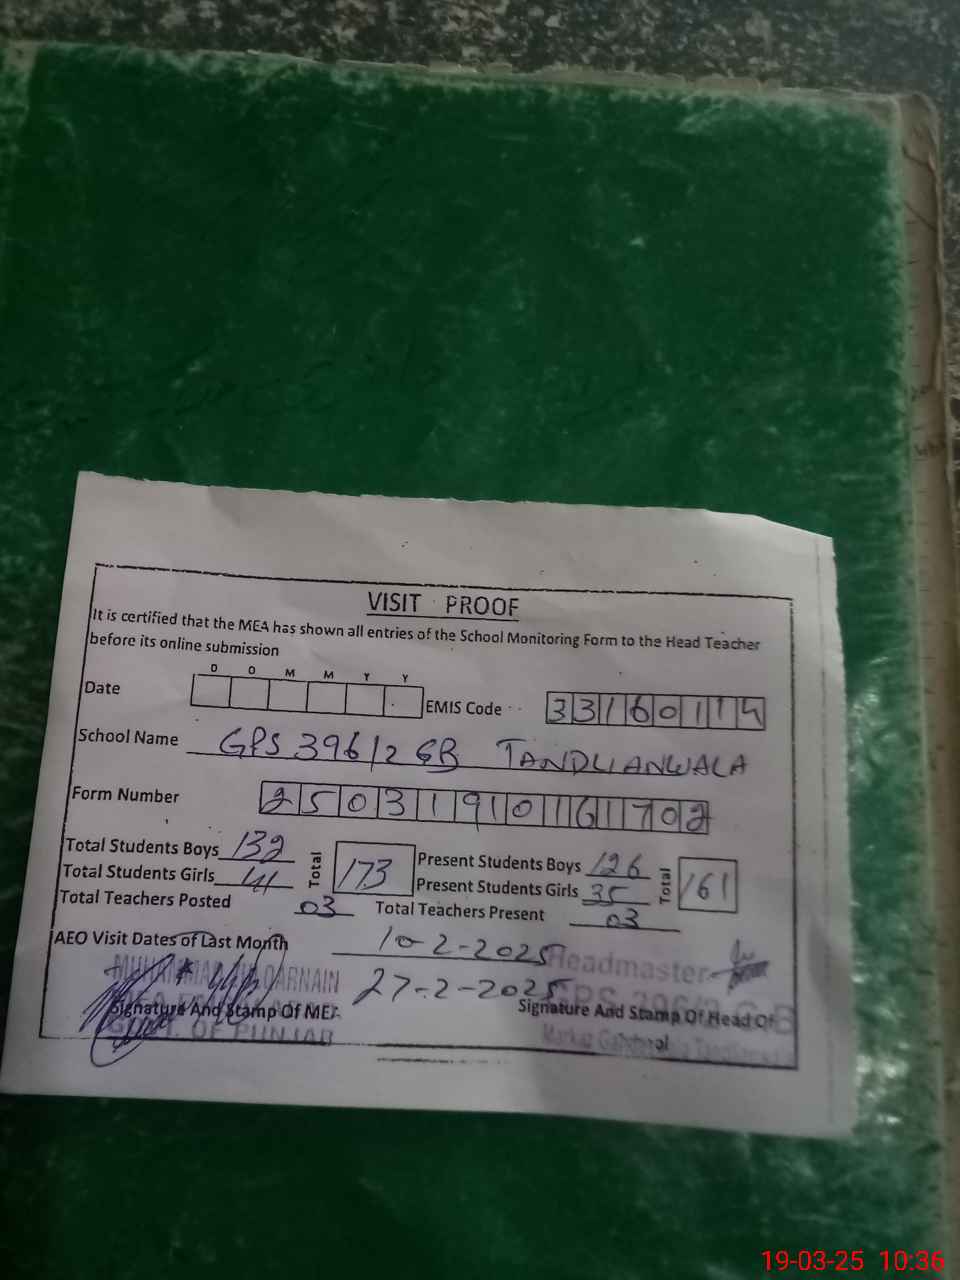 VISIT PROOF
It is certified that the MEA has shown all entries of the School Monitoring Form to the Head Teacher
before its online submission
D D M M Y Y
Date EMIS Code 33160114
School Name GPS 396/2 GB TANDLIANWALA
Form Number 250319101161702
Total Students Boys 132 Total 173 Present Students Boys 126 Total 161
Total Students Girls 41 Present Students Girls 35
Total Teachers Posted 03 Total Teachers Present 03
AEO Visit Dates of Last Month 10-2-2025 Headmaster
MUHAMMAD QARNAIN 27-2-2025 GPS 396/2 G.B
Signature And Stamp Of MEA Signature And Stamp Of Head Of
GOVT. OF PUNJAB School
19-03-25 10:36